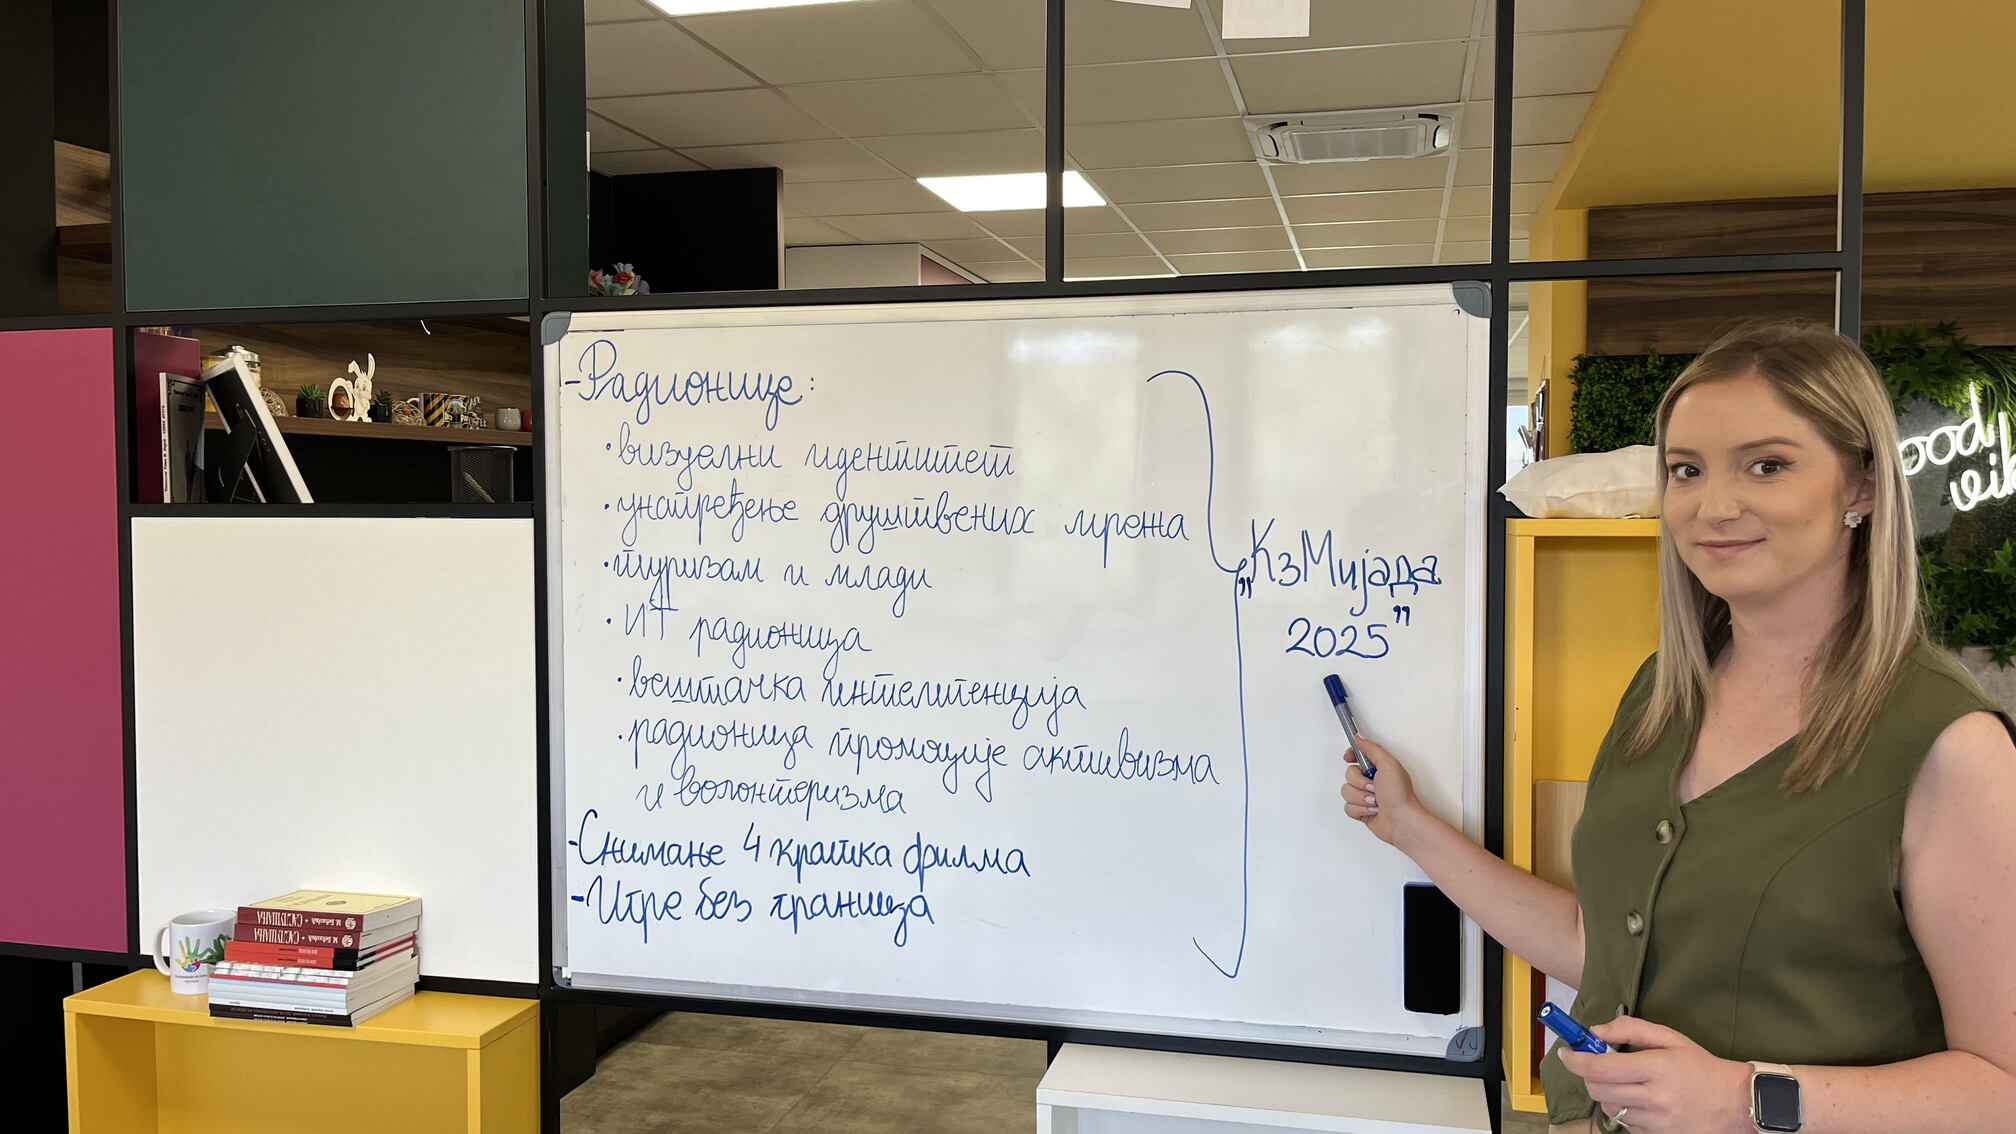 -Радионице:
•визуелни идентитет
•унапређење друштвених мрежа
•туризам и млади
•ИТ радионица
•вештачка интелигенција
•радионица промоције активизма
и волонтеризма
-Снимање 4 кратка филма
-Игре без граница
„КзМијада
2025”
good
vib